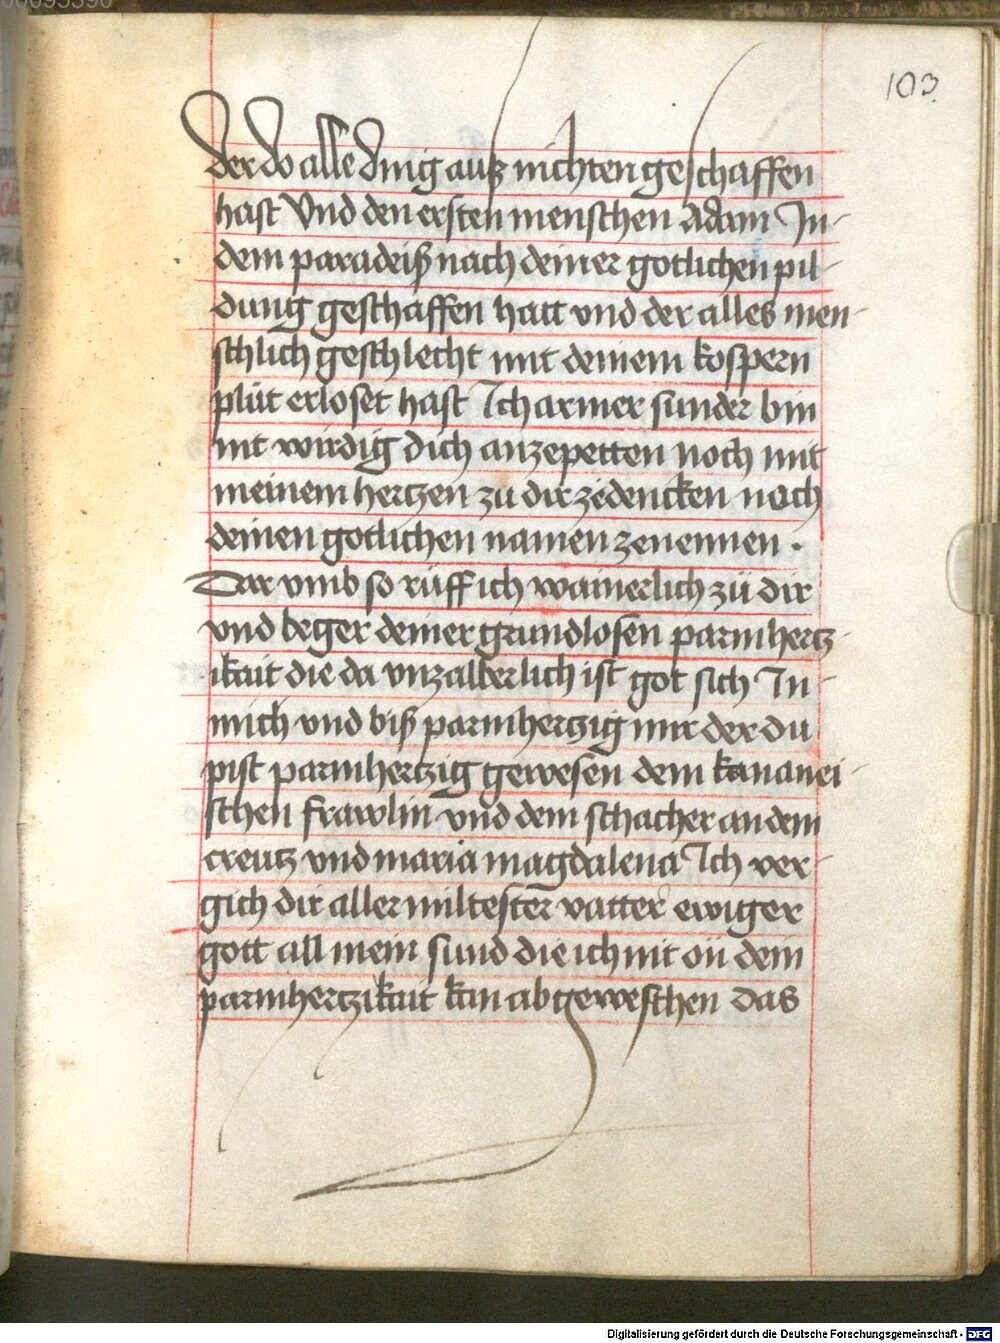 103
der do alle ding auß nichten geschaffen
hast Vnd den ersten menschen Adam In-
dem paradeiß nach deiner gotlichen pil-
dung geschaffen hatt vnd der alles men-
schlich geschlecht mit deinem kospern
plüt erloset hast Ich armer sunder bin
nit wirdig dich anzepetten noch mit
meinem hertzen zu dir zedencken noch
deinen gotlichen namen zenennen .
Dar vmb so rüff ich wainerlich zü dir
vnd beger deiner grundlosen parmhertz-
ikait die da vnzalberlich ist got sich In-
mich vnd biß parmhertzig mir der du
pist parmhertzig gewesen dem kananei-
schen frawlin vnd dem schacher an dem
creutz vnd maria magdalena Ich ver-
gich dir aller miltester vatter ewiger
gott all mein sund die ich nit on dem
parmhertzikait kan abgeweschen das
Digitalisierung gefördert durch die Deutsche Forschungsgemeinschaft - DFG